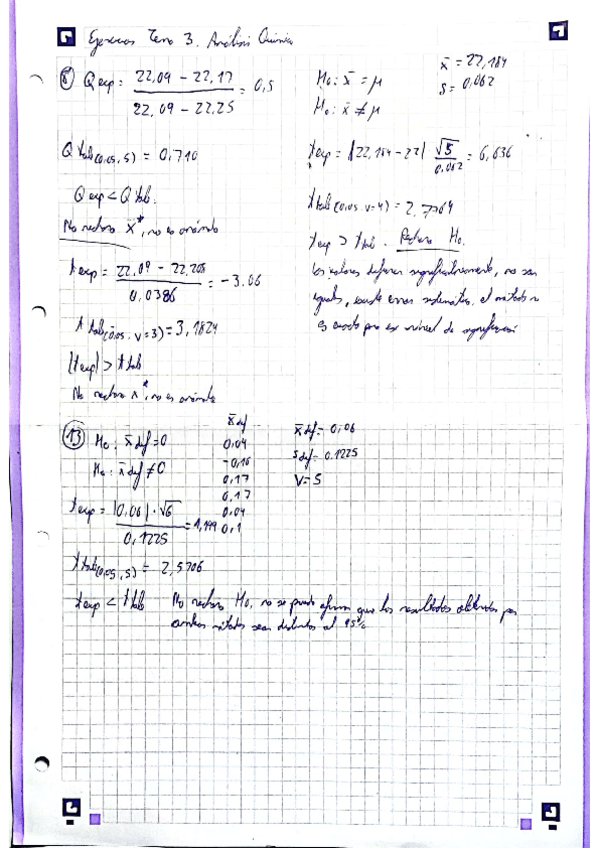 Ejercicios Tema 3. Análisis Química
8 Q exp = (22,09 − 22,17) / (22,09 − 22,25) = 0,5
Q tab(0,05, 5) = 0,710
Q exp < Q tab.
No rechazo x*, no es anómalo
t exp = (22,09 − 22,208) / 0,0386 = −3.06
t tab(0,05, v=3) = 3,1824
|t exp| > t tab
No rechazo x*, no es anómalo
x̄ = 22,184
s = 0,062
H₀: x̄ = μ
H₀: x̄ ≠ μ
t exp = |22,184 − 22| √5 / 0,062 = 6,636
t tab(0,05, v=4) = 2,7764
t exp > t tab. Rechazo H₀.
Los valores difieren significativamente, no son
iguales, existe error sistemático, el método no
es exacto para ese nivel de significación
13 H₀: x̄ dif = 0
H₀: x̄ dif ≠ 0
t exp = |0,06| · √6 / 0,1225 = 1,199
t tab(0,05, 5) = 2,5706
x̄ dif
0,04
−0,16
0,17
0,17
0,04
0,1
x̄ dif = 0,06
s dif = 0.1225
V = 5
t exp < t tab No rechazo H₀, no se puede afirmar que los resultados obtenidos por
ambos métodos sean distintos al 95%